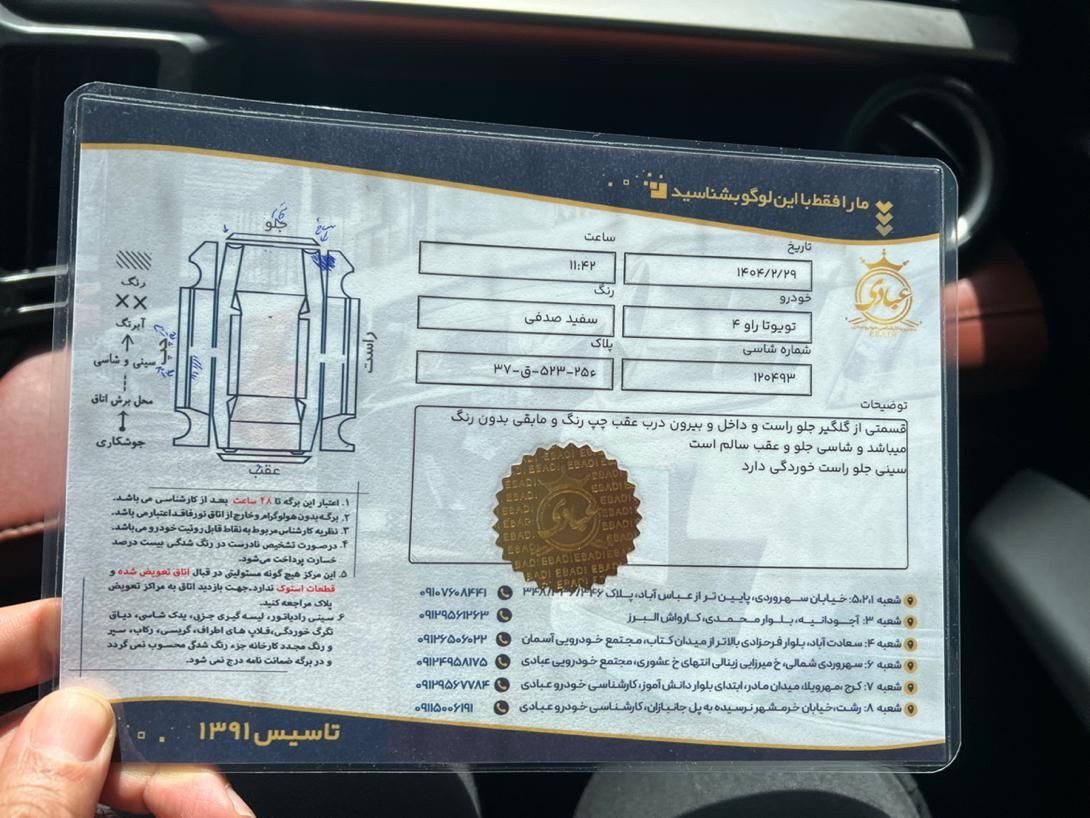 ما را فقط با این لوگو بشناسید
عبادی
EBADI
تاریخ
۱۴۰۴/۲/۲۹
ساعت
۱۱:۴۲
خودرو
تویوتا راو ۴
رنگ
سفید صدفی
شماره شاسی
۱۲۰۴۹۳
پلاک
۳۷-ق-۵۲۳-۲۵۶
توضیحات
قسمتی از گلگیر جلو راست و داخل و بیرون درب عقب چپ رنگ و مابقی بدون رنگ
میباشد و شاسی جلو و عقب سالم است
سینی جلو راست خوردگی دارد
جلو
راست
چپ
عقب
رنگ
آبرنگ
سینی و شاسی
محل برش اتاق
جوشکاری
۱. اعتبار این برگه تا ۴۸ ساعت بعد از کارشناسی می باشد.
۲. برگه بدون هولوگرام و خارج از اتاق نور فاقد اعتبار می باشد.
۳. نظریه کارشناس مربوط به نقاط قابل رویت خودرو می باشد.
۴. درصورت تشخیص نادرست در رنگ شدگی بیست درصد
خسارت پرداخت می‌شود.
۵. این مرکز هیچ گونه مسئولیتی در قبال اتاق تعویض شده و
قطعات استوک ندارد.جهت بازدید اتاق به مراکز تعویض
پلاک مراجعه کنید.
۶. سینی رادیاتور، لیسه گیری جزیی، یدک شاسی، دیاق
تگرگ خوردگی، قلاب های اطراف، گریسی، رکاب، سپر
و رنگ مجدد کارخانه جزء رنگ شدگی محسوب نمی گردد
و در برگه ضمانت نامه درج نمی شود.
عبادی
EBADI EBADI EBADI
شعبه ۵،۲،۱: خیابان سهروردی، پایین تر از عباس آباد، پلاک ۳۴۸/۳۴۶/۳۴۶ ۰۹۱۰۷۶۰۸۴۴۱
شعبه ۳: آجودانیه، بلوار محمدی، کارواش البرز ۰۹۱۲۹۵۶۱۲۶۳
شعبه ۴: سعادت آباد، بلوار فرحزادی بالاتر از میدان کتاب، مجتمع خودرویی آسمان ۰۹۱۲۶۵۰۶۰۲۲
شعبه ۶: سهروردی شمالی، خ میرزایی زینالی انتهای خ عشوری، مجتمع خودرویی عبادی ۰۹۱۲۴۹۵۸۱۷۵
شعبه ۷: کرج، مهرویلا، میدان مادر، ابتدای بلوار دانش آموز، کارشناسی خودرو عبادی ۰۹۱۲۹۵۶۷۷۸۴
شعبه ۸: رشت، خیابان خرمشهر نرسیده به پل جانبازان، کارشناسی خودرو عبادی ۰۹۱۱۵۰۰۶۱۹۱
تاسیس ۱۳۹۱